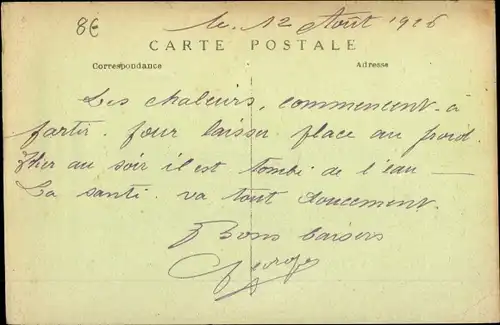 8€
le 12 Août 1926
CARTE POSTALE
Correspondance
Adresse
Les chaleurs, commencent à
partir. pour laisser place au froid.
Hier au soir il est tombé de l'eau —
La santé. va tout doucement.
Bons baisers